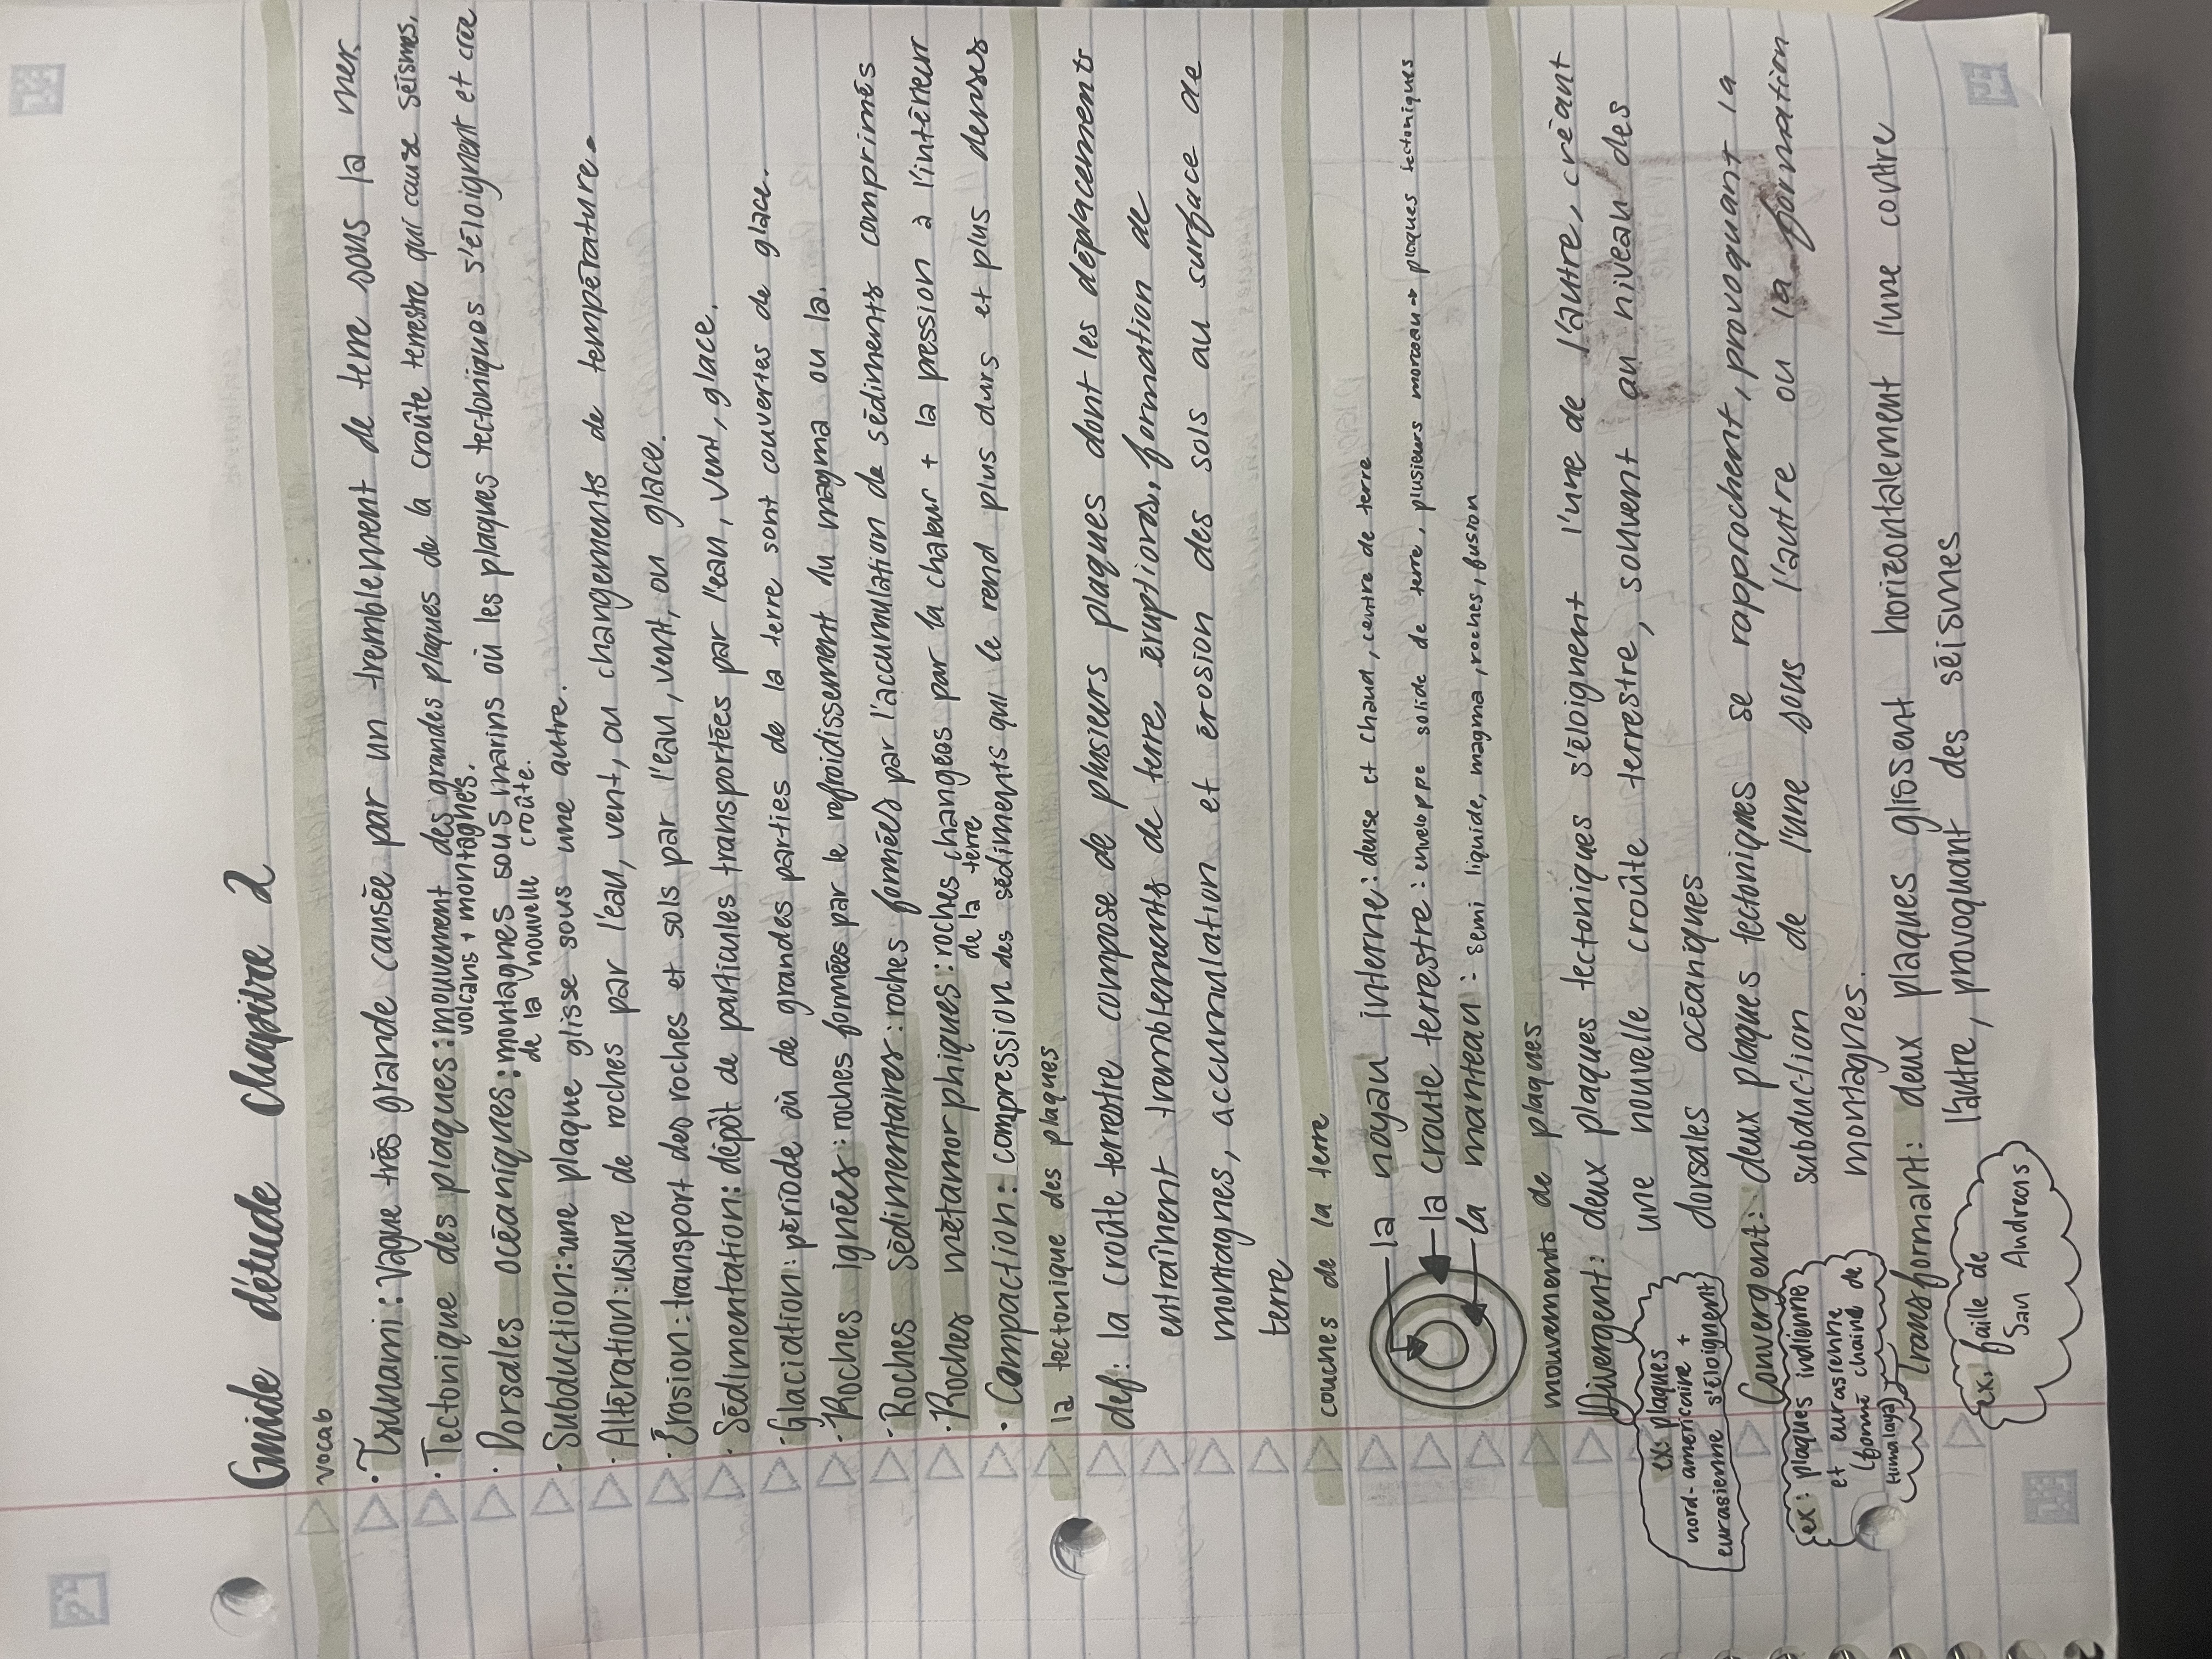 Guide d'étude Chapitre 2
vocab
• Tsunami: Vague très grande causée par un tremblement de terre sous la mer.
• Tectonique des plaques: mouvement des grandes plaques de la croûte terrestre qui cause séismes,
volcans + montagnes.
• Dorsales océaniques: montagnes sous marins où les plaques tectoniques s'éloignent et crée
de la nouvelle croûte.
• Subduction: une plaque glisse sous une autre.
• Altération: usure de roches par l'eau, vent, ou changements de température.
• Érosion: transport des roches et sols par l'eau, vent, ou glace.
• Sédimentation: dépôt de particules transportées par l'eau, vent, glace.
• Glaciation: période où de grandes parties de la terre sont couvertes de glace.
• Roches ignées: roches formées par le refroidissement du magma ou la.
• Roches Sédimentaires: roches formées par l'accumulation de sédiments comprimés
• Roches métamorphiques: roches changées par la chaleur + la pression à l'intérieur
de la terre
• Compaction: compression des sédiments qui le rend plus durs et plus denses
la tectonique des plaques
def: la croûte terrestre compose de plusieurs plaques dont les déplacements
entraînent tremblements de terre, éruptions, formation de
montagnes, accumulation et érosion des sols au surface de
terre
couches de la terre
la noyau interne: dense et chaud, centre de terre
la croute terrestre: enveloppe solide de terre, plusieurs morceau → plaques tectoniques
la manteau: semi liquide, magma, roches, fusion
mouvements de plaques
Divergent: deux plaques tectoniques s'éloignent l'une de l'autre, créant
une nouvelle croûte terrestre, souvent au niveau des
dorsales océaniques
ex: plaques
nord-americaine +
eurasienne s'éloignent
Convergent: deux plaques tectoniques se rapprochent, provoquant la
subduction de l'une sous l'autre ou la formation
montagnes.
ex: plaques indienne
et eurasienne
(formé chaine de
Himalaya)
Transformant: deux plaques glissent horizontalement l'une contre
l'autre, provoquant des séismes
ex, faille de
San Andreas